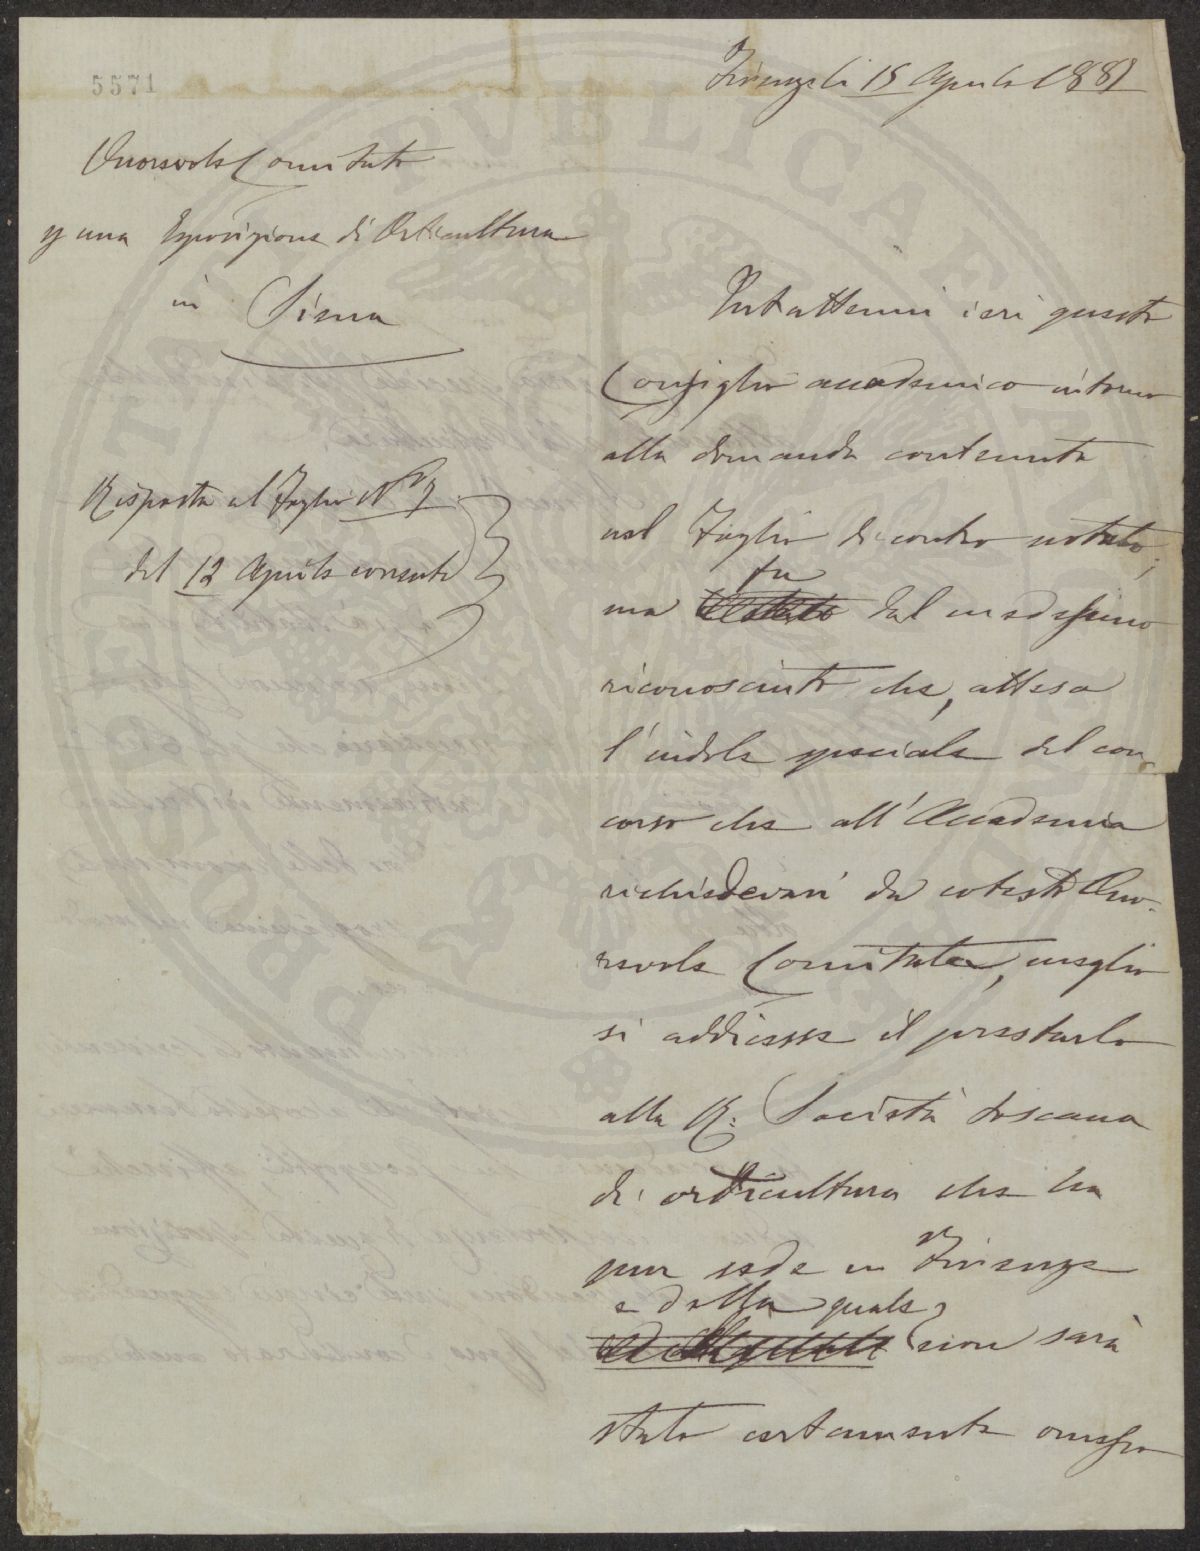 5571
Firenze li 15 Aprile 1881
Onorevole Comitato
p una Esposizione di Orticultura
in Siena
Risposta al Foglio N° 7
del 12 Aprile corrente
Intrattenni ieri questo
Consiglio accademico intorno
alla domanda contenuta
nel Foglio di contro notato;
fu
ma dal medesimo
riconosciuto che, attesa
l'indole speciale del con-
corso che all'Accademia
richiedevasi da cotesto Ono-
revole Comitato, meglio
si addicesse il prestarlo
alla R. Società toscana
di orticultura che ha
pur sede in Firenze
e dalla quale
non sarà
stato certamente omesso